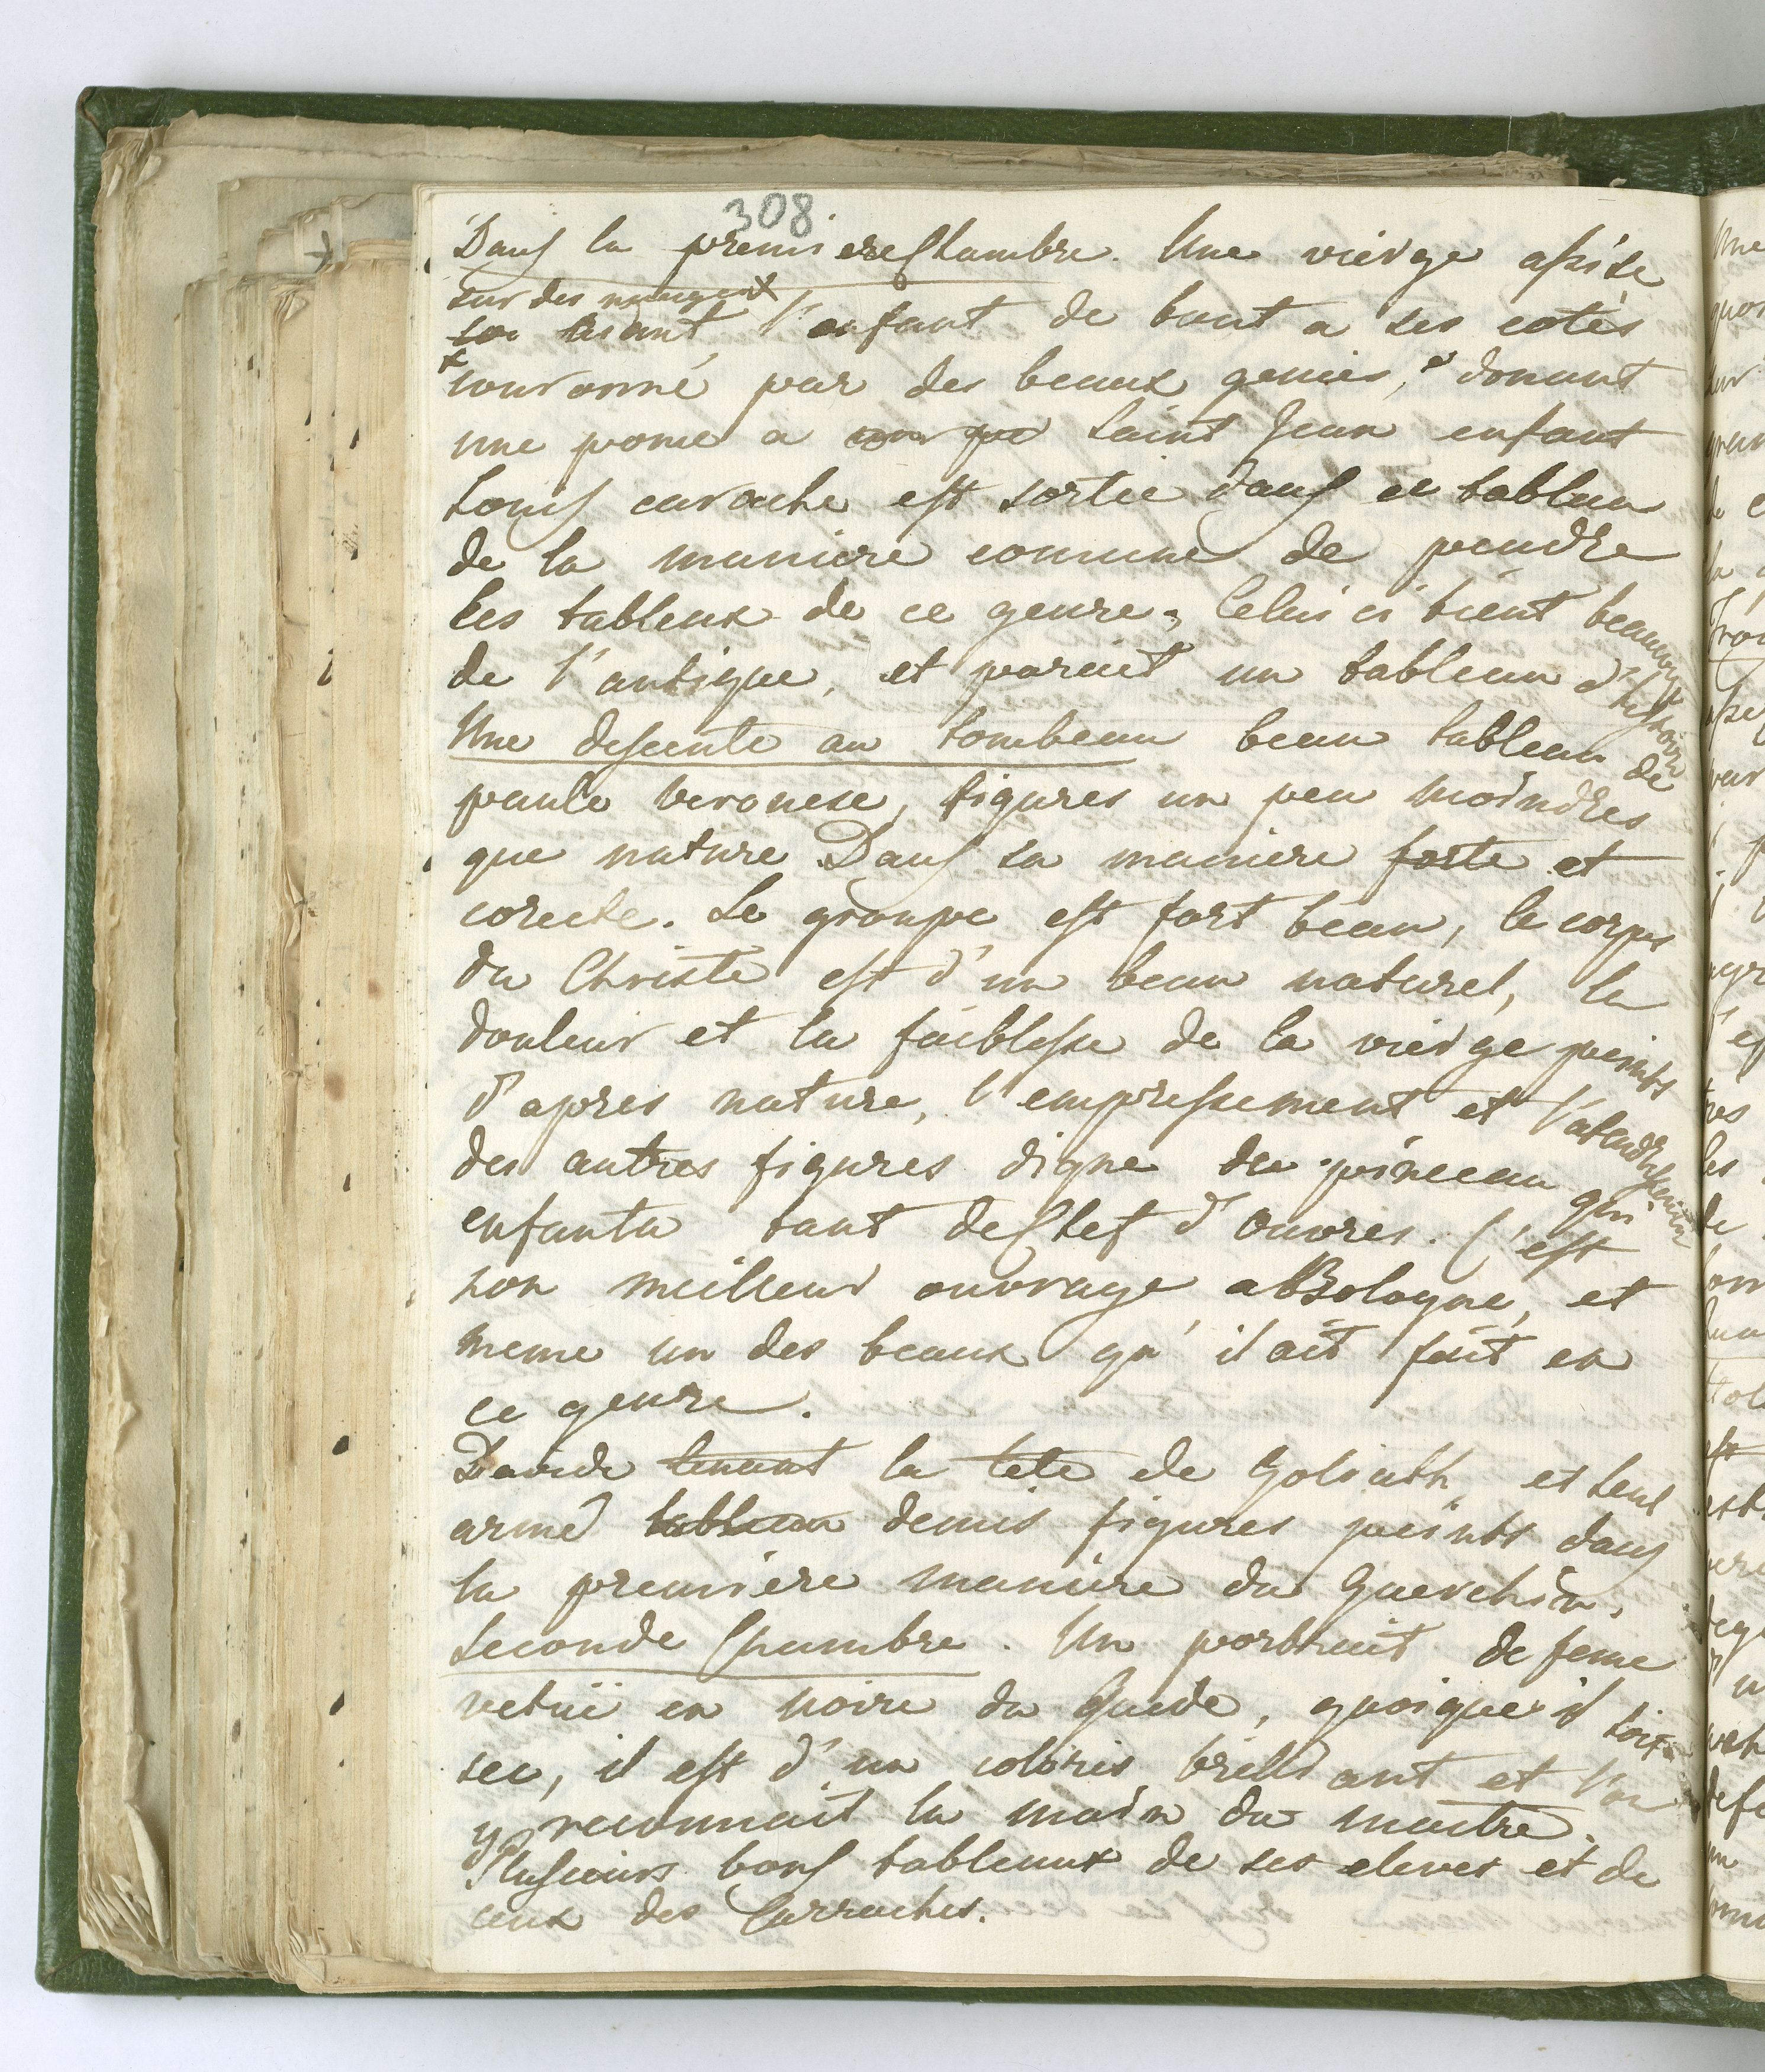 308
Dans la premiere Chambre. Une vierge assise
sur des nuages x
tenant l'enfant de bout a ses cotès
x couronné par des beaux genies, donant
une pome a Saint Jean enfant
Louis carache est sortie dans ce tableau
de la maniere comune de peindre
les tableux de ce genre, Celui ci tient beaucoup
de l'antique, et parait un tableau d'histoire
Une descente au tombeau beau tableau de
paule veronese, figures un peu moindres
que nature Dans sa maniere forte et
corecte. Le groupe est fort beau, le corps
du Christe est d'un beau naturel, la
douleur et la faiblesse de la vierge peints
d'apres nature, l'empressement et l'atendrissement
des autres figures digne du pinceau qui
enfanta tant de Chef d'ouvres. C'est
son meilleur ouvrage a Bologne, et
meme un des beaux qu'il ait fait en
ce genre.
Davide tenant la tete de Goliath, et seul
armé tableau demis figures peints dans
la première manière du Guerchin.
Seconde Chambre. Un portrait de feme
vetuë en noire du Guide, quoique il soit
sec, il est d'un coloris brilliant et l'on
y reconnait la main du maitre.
Plusieurs bons tableaux de ses eleves et de
ceux des Carraches.